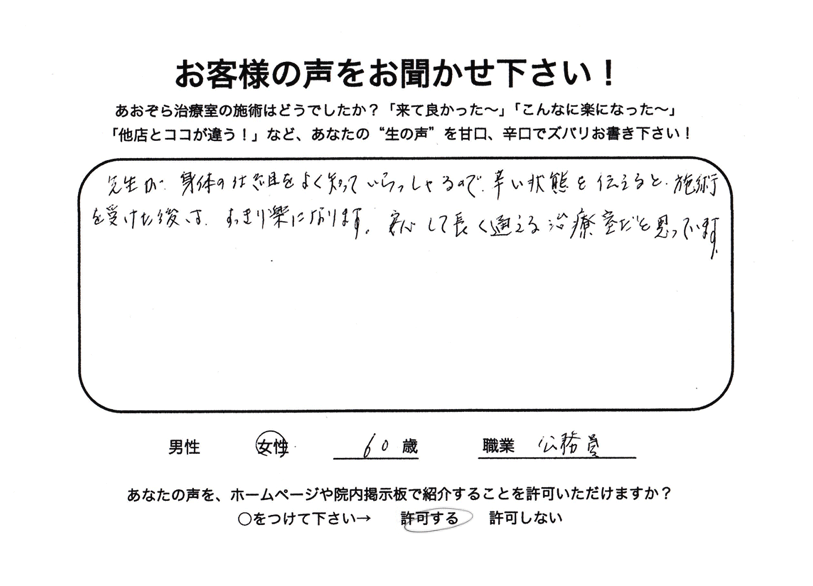 お客様の声をお聞かせ下さい！
あおぞら治療室の施術はどうでしたか？「来て良かった〜」「こんなに楽になった〜」
「他店とココが違う！」など、あなたの“生の声”を甘口、辛口でズバリお書き下さい！
先生が、身体の仕組をよく知っていらっしゃるので、辛い状態を伝えると、施術
を受けた後は、すっきり楽になります。安心して長く通える治療室だと思っています。
男性 女性 60歳 職業 公務員
あなたの声を、ホームページや院内掲示板で紹介することを許可いただけますか？
○をつけて下さい→ 許可する 許可しない